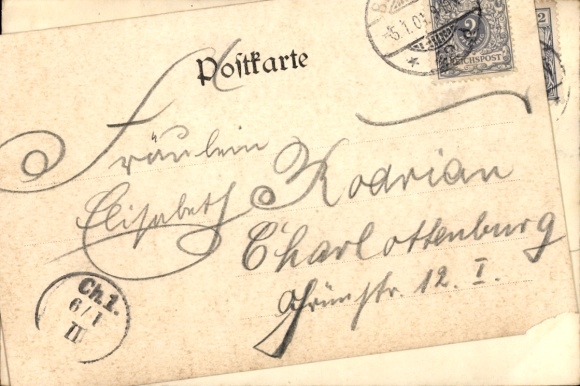 Postkarte
5.1.01
2
REICHSPOST
2
Fräulein
Elisabeth Rodrian
Charlottenburg
12. I.
Ch 1.
6/1
III